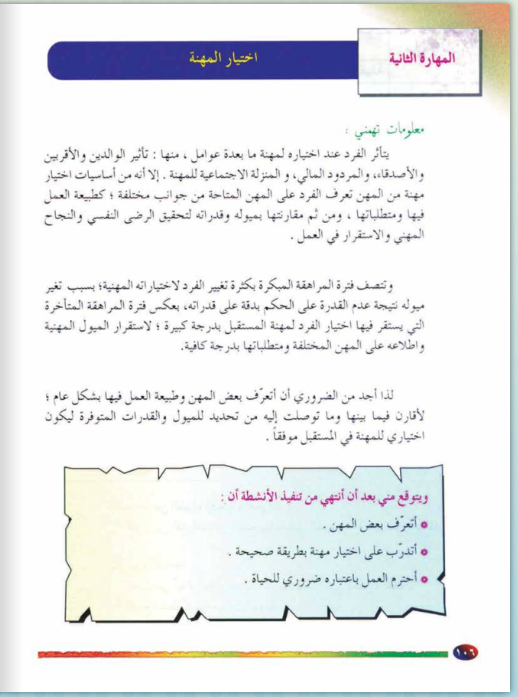 المهارة الثانية
اختيار المهنة
معلومات تهمني :
يتأثر الفرد عند اختياره لمهنة ما بعدة عوامل ، منها : تأثير الوالدين والأقربين
والأصدقاء، والمردود المالي، و المنزلة الاجتماعية للمهنة . إلا أنه من أساسيات اختيار
مهنة من المهن تعرف الفرد على المهن المتاحة من جوانب مختلفة ؛ كطبيعة العمل
فيها ومتطلباتها ، ومن ثم مقارنتها بميوله وقدراته لتحقيق الرضى النفسي والنجاح
المهني والاستقرار في العمل .
وتتصف فترة المراهقة المبكرة بكثرة تغيير الفرد لاختياراته المهنية؛ بسبب تغير
ميوله نتيجة عدم القدرة على الحكم بدقة على قدراته، بعكس فترة المراهقة المتأخرة
التي يستقر فيها اختيار الفرد لمهنة المستقبل بدرجة كبيرة ؛ لاستقرار الميول المهنية
واطلاعه على المهن المختلفة ومتطلباتها بدرجة كافية.
لذا أجد من الضروري أن أتعرّف بعض المهن وطبيعة العمل فيها بشكل عام ؛
لأقارن فيما بينها وما توصلت إليه من تحديد للميول والقدرات المتوفرة ليكون
اختياري للمهنة في المستقبل موفقاً .
ويتوقع مني بعد أن أنتهي من تنفيذ الأنشطة أن :
أتعرّف بعض المهن .
أتدرّب على اختيار مهنة بطريقة صحيحة .
أحترم العمل باعتباره ضروري للحياة .
١٠٦